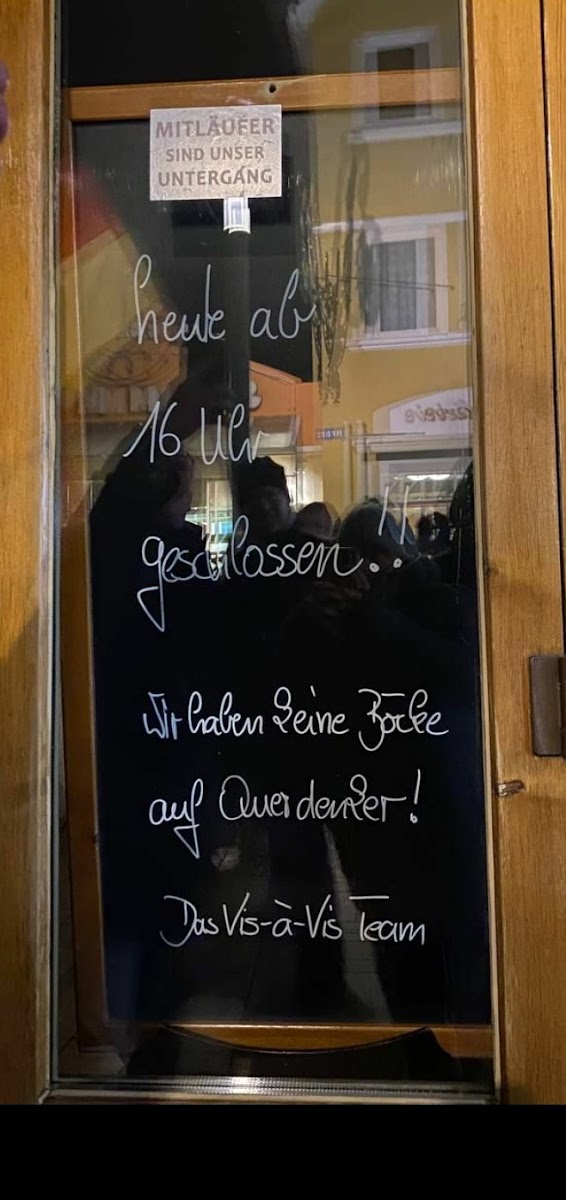 MITLÄUFER
SIND UNSER
UNTERGANG
heute ab
16 Uhr
geschlossen!!
Wir haben keine Böcke
auf Querdenker!
Das Vis-à-Vis Team